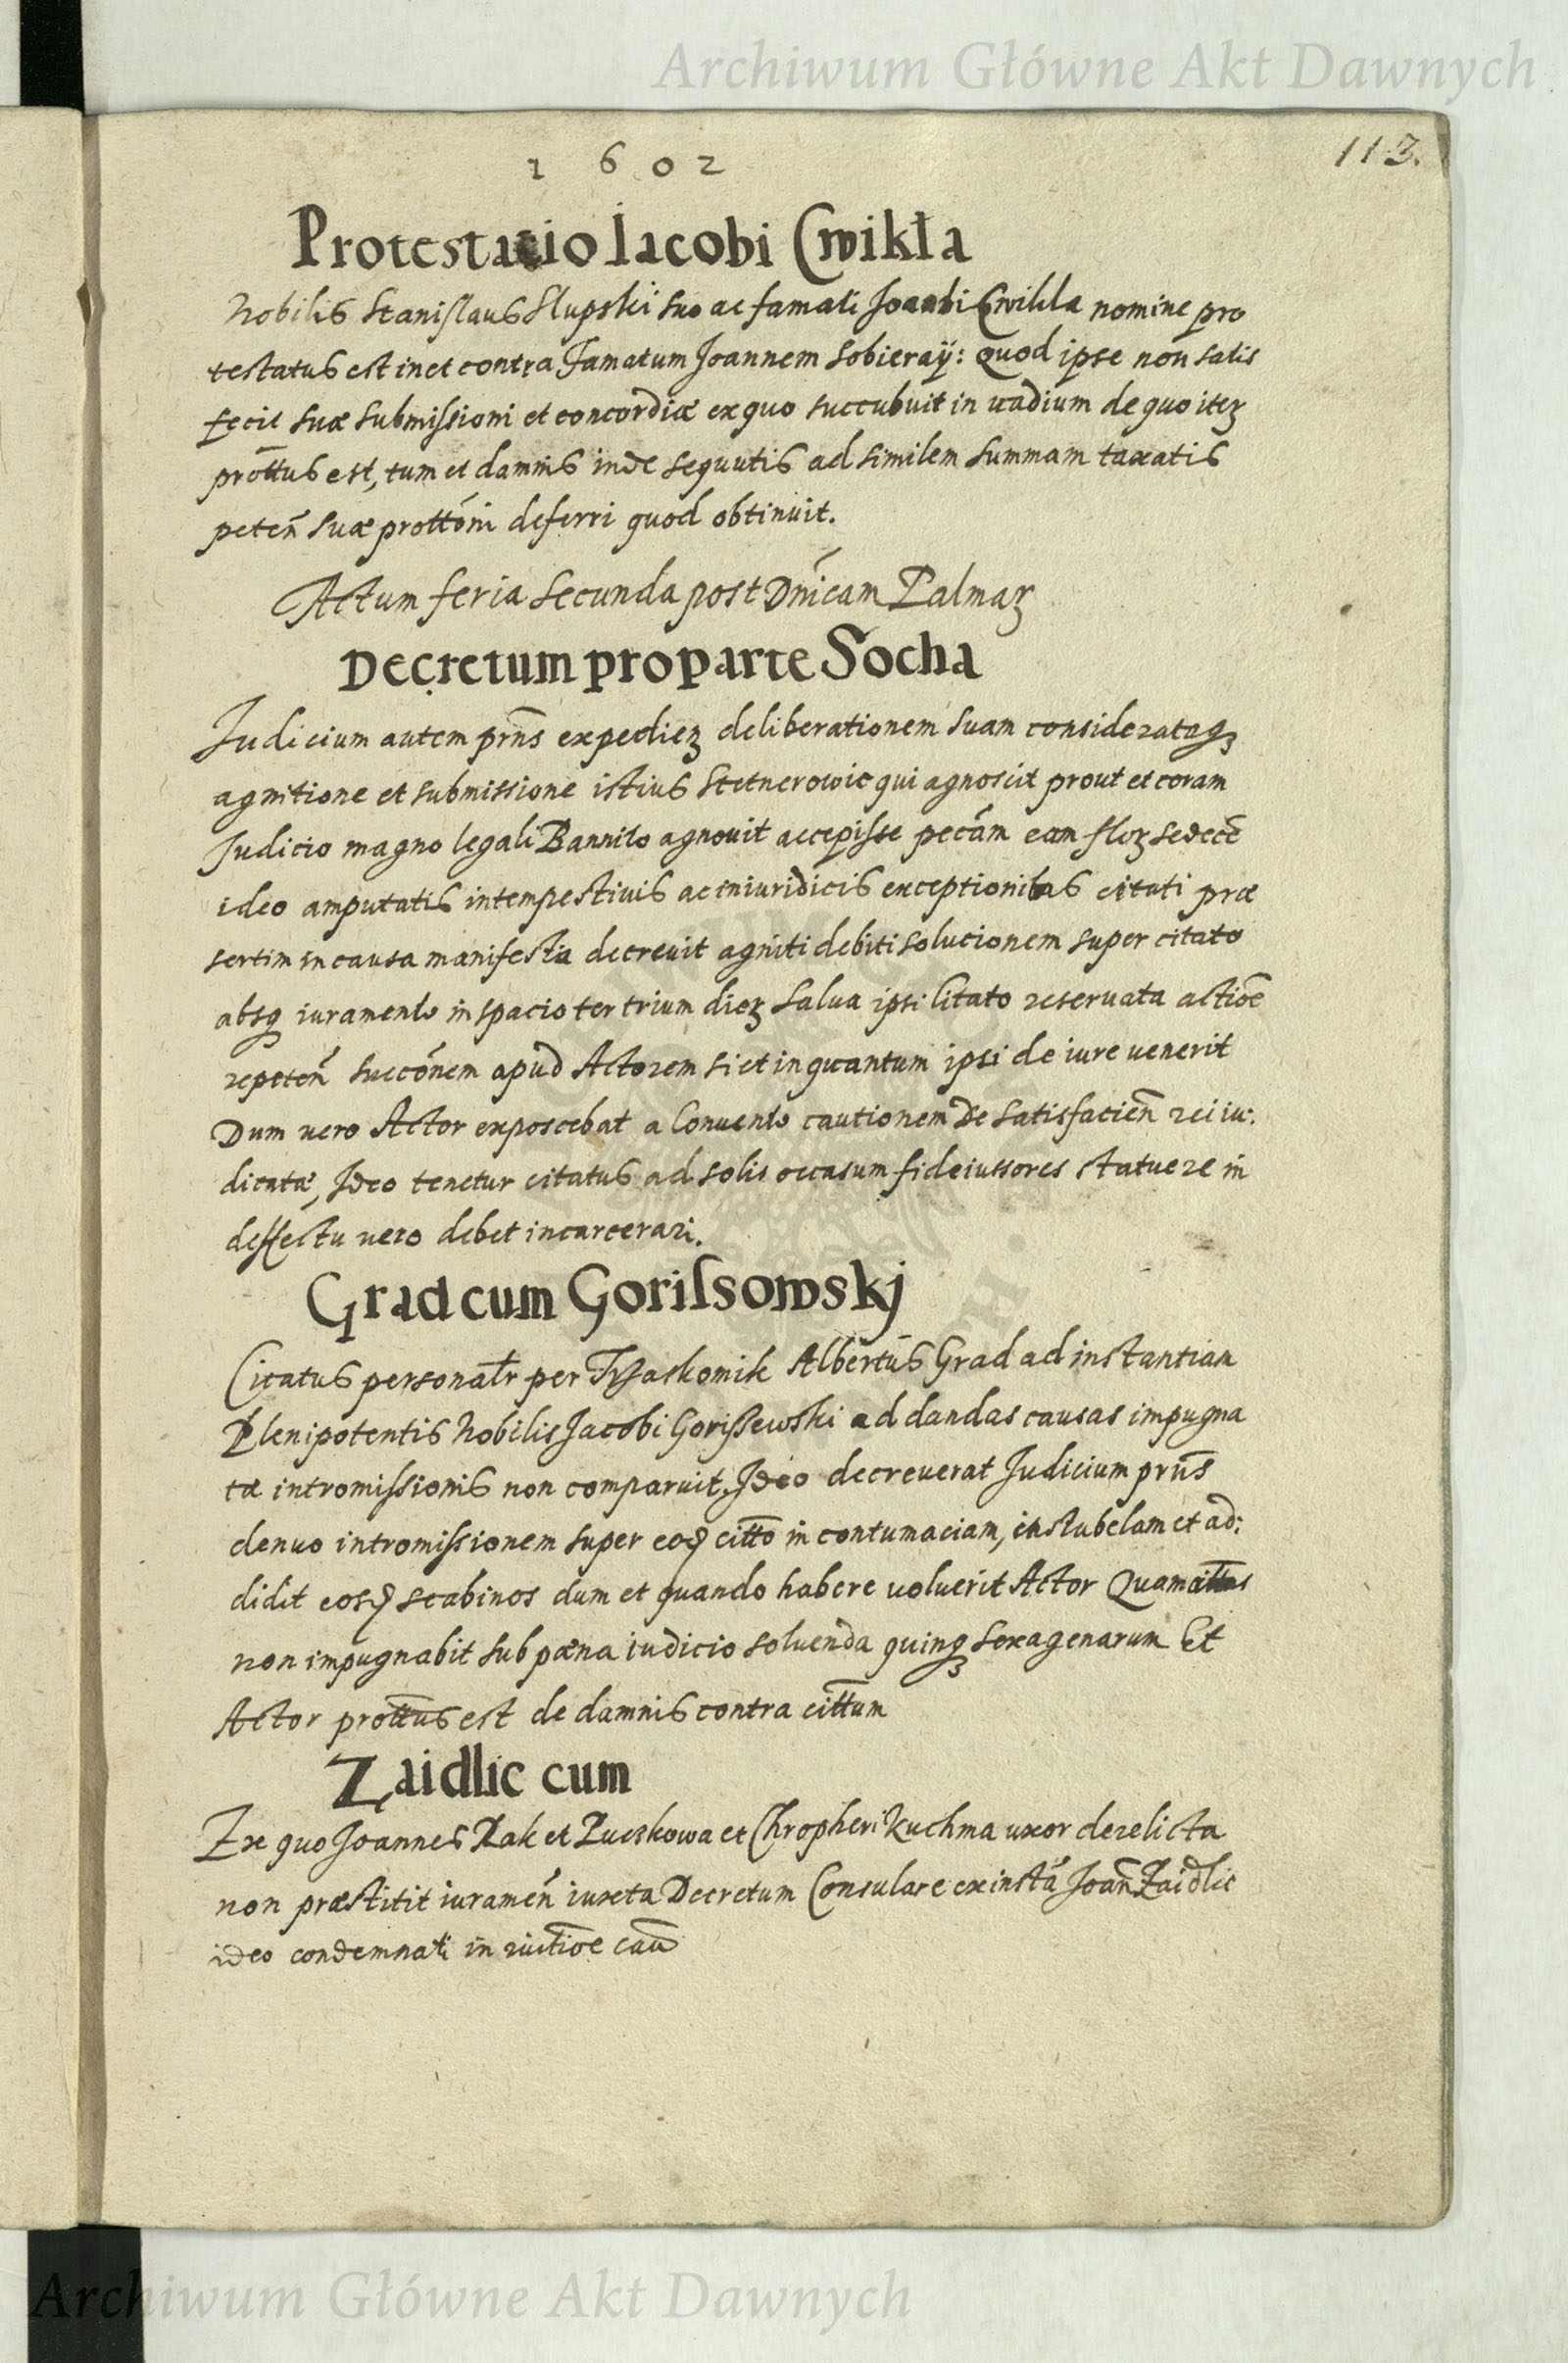 Archiwum Główne Akt Dawnych
1 6 0 2
113.
Protestatio Iacobi Cwikla
Nobilis Stanislaus Slupski suo ac famati Jacobi Cwikla nomine pro
testatus est in et contra Famatum Joannem Sobieraÿ: Quod ipse non satis
fecit suæ submissioni et concordiæ ex quo succubuit in vadium de quo iteꝫ
prottus est, tum et damnis inde sequutis ad similem summam taxatis
peteñ suæ prottoni deferri quod obtinuit.
Actum feria secunda post Dnicam Palmaꝝ
Decretum pro parte Socha
Judicium autem prns expedieꝫ deliberationem suam consideratаqꝫ
agnitione et submissione istius Stetnerowic qui agnoscit prout et coram
Judicio magno legali Bannito agnovit accepisse pecam eam floꝝ sedece
ideo amputatis intempestivis ac iniuridicis exceptionibus citati præ
sertim in causa manifesta decrevit agniti debiti solucionem super citato
absqꝫ iuramento in spacio ter trium dieꝝ salva ipsi Citato reservata actioe
repeteñ succonem apud Actorem si et in quantum ipsi de iure venerit
Dum vero Actor exposcebat a Convento cautionem de satisfacieñ rei iu:
dicatæ, Ideo tenetur citatus ad solis occasum fideiussores statuere in
deffectu vero debet incarcerari.
Grad cum Gorissowskj
Citatus personalr per Trzaskomik Albertus Grad ad instantiam
Plenipotentis Nobilis Jacobi Gorissewski ad dandas causas impugna
tæ intromissionis non comparuit, Ideo decreverat Judicium prns
denuo intromissionem super eoqꝫ citto in contumaciam, et ad:
didit eosqꝫ scabinos dum et quando habere voluerit Actor Quam cittus
non impugnabit sub pæna iudicio solvenda quinqꝫ sexagenarum Et
Actor prottus est de damnis contra cittum
Zaidlic cum
Ex quo Joannes Rak et Pucskowa et Chropheri Kuchma uxor derelicta
non præstitit iurameñ iuxta Decretum Consulare ex insta Joañ Zaidlic
ideo condemnati in cau
Archiwum Główne Akt Dawnych